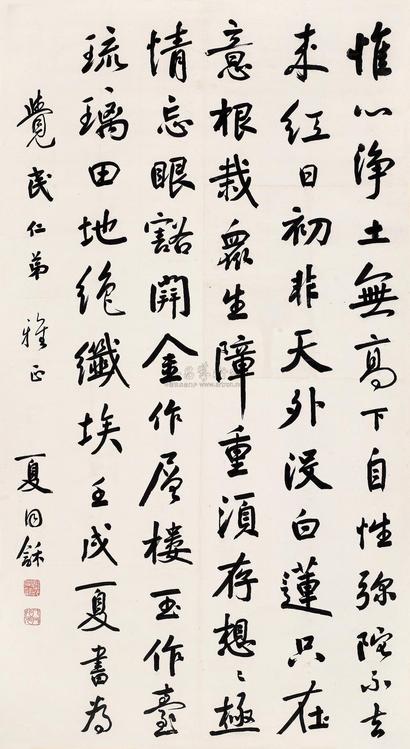 惟心淨土無高下自性弥陀不去
来红日初非天外没白蓮只在
意根栽眾生障重須存想想極
情忘眼豁開金作層樓玉作臺
琉璃田地絶纖埃壬戌夏書為
覺民仁弟雅正 夏同龢